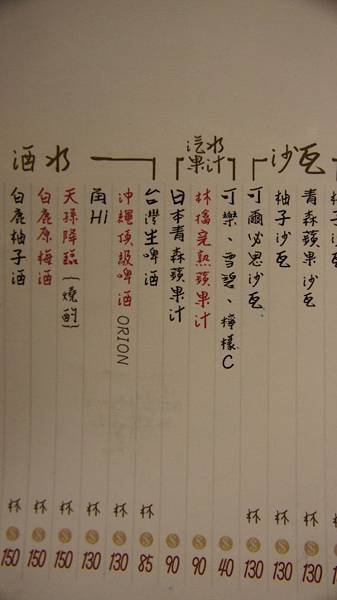 沙瓦
青森蘋果沙瓦 杯 130
柚子沙瓦 杯 130
可爾必思沙瓦 杯 130
汽水果汁
可樂、雪碧、檸檬C 40
林檎完熟蘋果汁 90
日本青森蘋果汁 90
酒水
台灣生啤酒 杯 85
沖繩頂級啤酒 ORION 杯 130
角Hi 杯 130
天孫降臨(燒酌) 杯 150
白鹿原梅酒 杯 150
白鹿柚子酒 杯 150